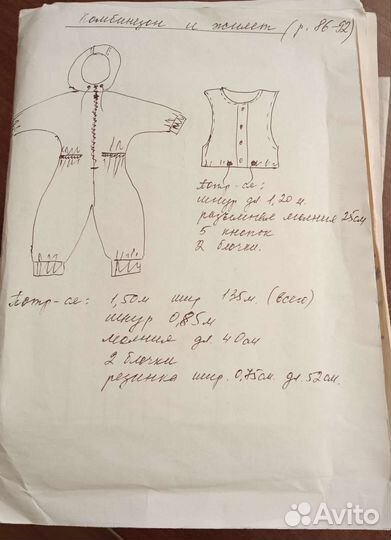 Комбинезон и жилет (р. 86-92)
Потр-ся:
шнур дл 1,20 м.
разъемная молния 25см
5 кнопок
2 блочки.
Потр-ся: 1,50м шир 135м. (всего)
шнур 0,85м
молния дл 40см
2 блочки
резинка шир. 0,75см. дл. 52см.
Avito